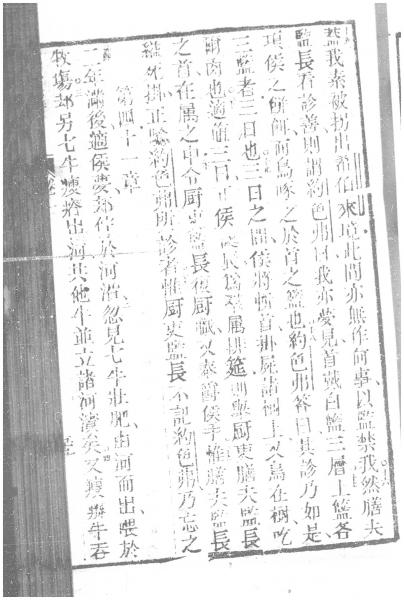 蓋我素被拐出希伯來境此間亦無作何事以監禁我然膳夫
監長看診善則謂約色弗曰我亦夢見首戴白籃三層上籃各
項侯之餅餌而鳥啄之於首之籃也約色弗答曰其診乃如是
三籃者三日也三日之間侯將斬首掛屍諸樹上又鳥在樹吃
爾肉也適維三日正侯誕辰為眾属排筵則舉厨吏膳夫監長
之首在属之中令厨吏監長復厨職又奉爵侯手惟膳夫監長
繼死掛正驗約色弗所診者惟厨吏監長不記約色弗乃忘之
第四十一章
二年滿後適侯夢却佇於河沿忽見七牛壯肥由河而出喂於
牧塲却另七牛瘦瘠出河共他牛並立諸河濱矣又瘦瘠牛吞